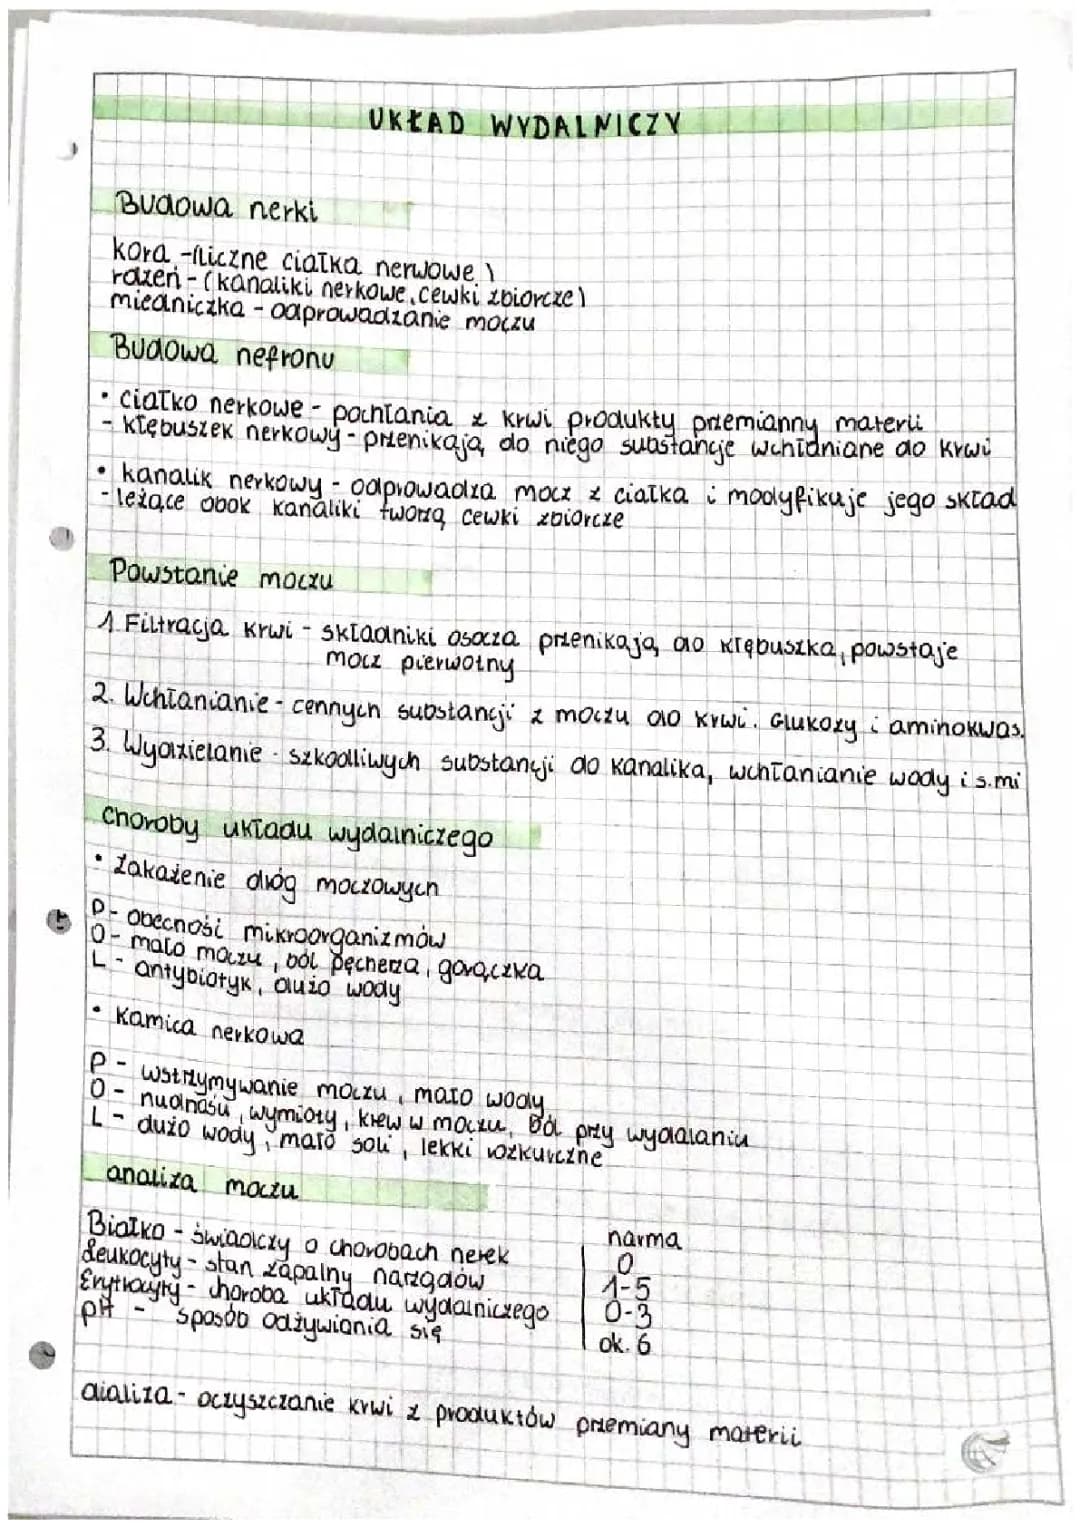 UKŁAD WYDALNICZY
Budowa nerki
kora - (liczne ciałka nerwowe)
rdzeń - (kanaliki nerkowe, cewki zbiorcze)
miedniczka - odprowadzanie moczu
Budowa nefronu
• ciałko nerkowe - pochłania z krwi produkty przemianny materii
- kłębuszek nerkowy - przenikają do niego substancje wchłaniane do krwi
• kanalik nerkowy - odprowadza mocz z ciałka i modyfikuje jego skład
- leżące obok kanaliki tworzą cewki zbiorcze
Powstanie moczu
1. Filtracja krwi - składniki osocza przenikają do kłębuszka, powstaje
mocz pierwotny
2. Wchłanianie - cennych substancji z moczu do krwi. Glukozy i aminokwas.
3. Wydzielanie - szkodliwych substancji do kanalika, wchłanianie wody i s.mi
Choroby układu wydalniczego
• Zakażenie dróg moczowych
P - obecność mikroorganizmów
O - mało moczu, ból pęcherza, gorączka
L - antybiotyk, dużo wody
• Kamica nerkowa
P - wstrzymywanie moczu, mało wody
O - nudnośu, wymioty, krew w moczu, ból przy wydalaniu
L - dużo wody, mało soli, lekki rozkurczne
analiza moczu
norma
Białko - świadczy o chorobach nerek 0
Leukocyty - stan zapalny narządów 1-5
Erytrocyty - choroba układu wydalniczego 0-3
pH - sposób odżywiania się ok. 6
dializa - oczyszczanie krwi z produktów przemiany materii